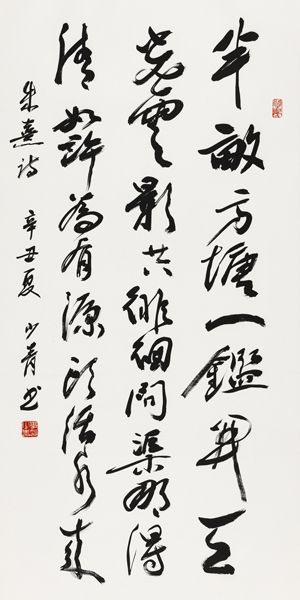 半畝方塘一鑑開天
光雲影共徘徊問渠那得
清如許為有源頭活水來
朱熹詩 辛丑夏 少青书